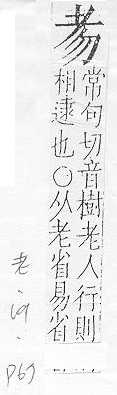 常句切音樹老人行則
相逮也○从老省易省
老